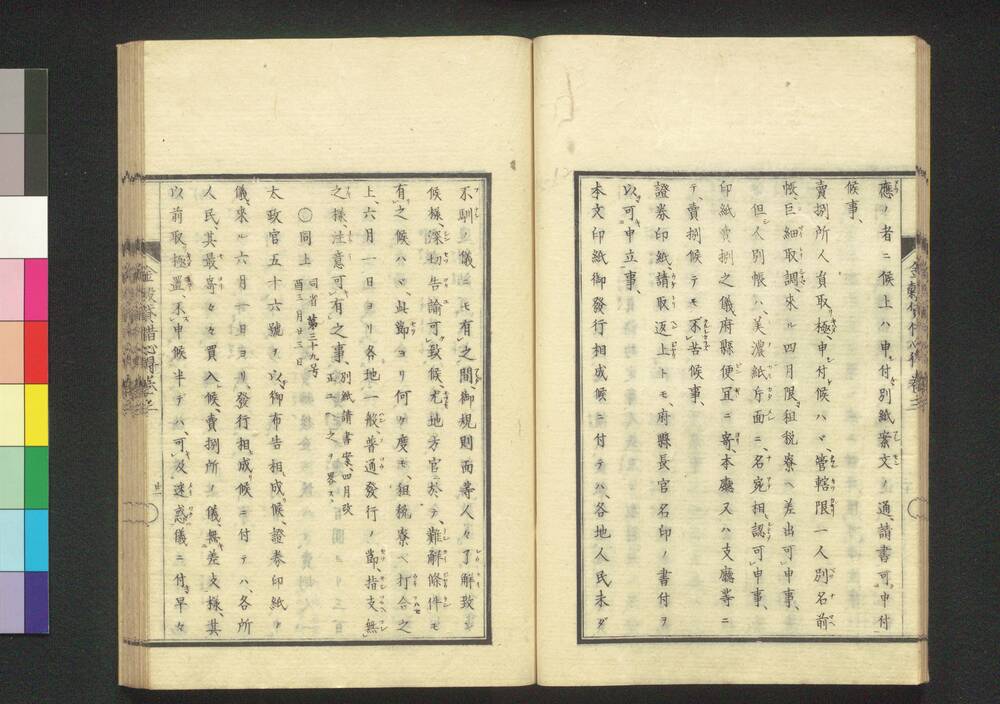 應ノ者ニ候上ハ申付、別紙案文ノ通請書可申付
候事、
賣捌所人員取極、申付候ハヾ、管轄限一人別名前
帳、巨細取調、來ル四月限、租税寮ヘ差出可申事、
但シ人別帳ハ、美濃紙片面ニ、名宛相認可申事、
印紙賣捌之儀府縣便宜ニ寄、本廳又ハ支廳等ニ
テ、賣捌候テモ不苦候事、
證券印紙請取返上トモ、府縣長官名印ノ書付ヲ
以、可申立事、
本文印紙御發行相成候ニ付テハ、各地人民未ダ
不馴ノ儀ニモ有之間、御規則面等人々了解致シ
候様、深切告諭可致候、尤地方官ニ於テ、難解條件モ
有之候ハヾ、此節ヨリ何ケ度モ、租税寮ヘ打合之
上、六月一日ヨリ各地一般、普通發行ノ節、指支無
之様、注意可有之事、別紙請書案、四月改正ニ付之ヲ畧ス、
〇同上 同省第三十九号 酉三月廿三日
太政官五十六號ヲ以、御布告相成候、證券印紙ノ
儀、來ル六月一日ヨリ、發行相成候ニ付テハ、各所
人民、其最寄々々買入候、賣捌所ノ儀、無差支様、其
以前取極置不申候半デハ、可及迷惑儀ニ付、早々